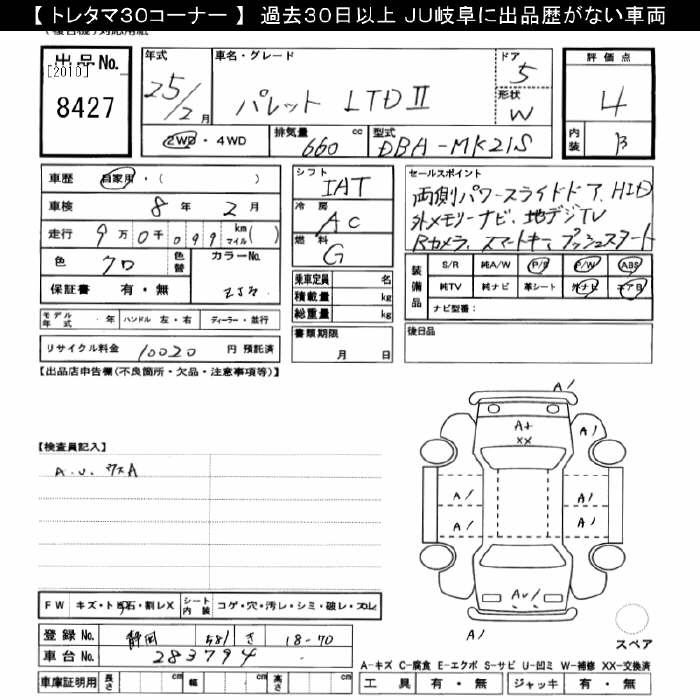 【 トレタマ30コーナー 】 過去30日以上 JU岐阜に出品歴がない車両
出品No. 年式 車名・グレード ドア 評価点
[2010] 25/2月 パレット LTDⅡ 5 4
8427 形状 W
2WD・4WD 排気量 660 cc 型式 DBA-MK21S 内装 B
車歴 自家用・( ) シフト IAT セールスポイント
車検 8年 2月 冷房 AC 両側パワースライドドア、HID
走行 9万0千099 km マイル( ) 燃料 G 外メモリーナビ、地デジTV
Rカメラ、スマートキー、プッシュスタート
色 クロ 色替 カラーNo. ZJ3
保証書 有・無
乗車定員 名
積載量 kg
総重量 kg
装備品 S/R 純A/W P/S P/W ABS
純TV 純ナビ 革シート 外ナビ エアB
ナビ型番:
モデル年式 ・ 年 ハンドル 左・右 ディーラー・並行
書類期限 月 日
後日品
リサイクル料金 10020 円 預託済
【出品店申告欄(不良箇所・欠品・注意事項等)】
【検査員記入】
A.U.
A/
A/ A+ A/
XX
A/ A/
A/ A/
A/
スペア
FW キズ・ト石・割レX シート内装 コゲ・穴・汚レ・シミ・破レ・スレ
登録No. 静岡 581 さ 18-70
車台No. 283794
A-キズ C-腐食 E-エクボ S-サビ U-凹ミ W-補修 XX-交換済
車庫証明用 長さ cm 幅 cm 高さ cm 工具 有・無 ジャッキ 有・無